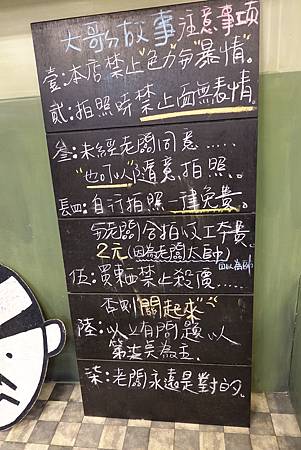 大哥ㄉ故事注意事項
壹:本店禁止"色"力"ㄉ"暴"情"。
貳:拍照時禁止面無表情。
參:未經老闆同意.....
"也可以"隨意拍照。
肆:自行拍照一律免費。
與老闆合拍以工本費
2元(因為老闆太帥)
伍:買東西禁止殺價......
否則"關起來"
陸:以上有問題以
第柒為主.
柒:老闆永遠是對的。